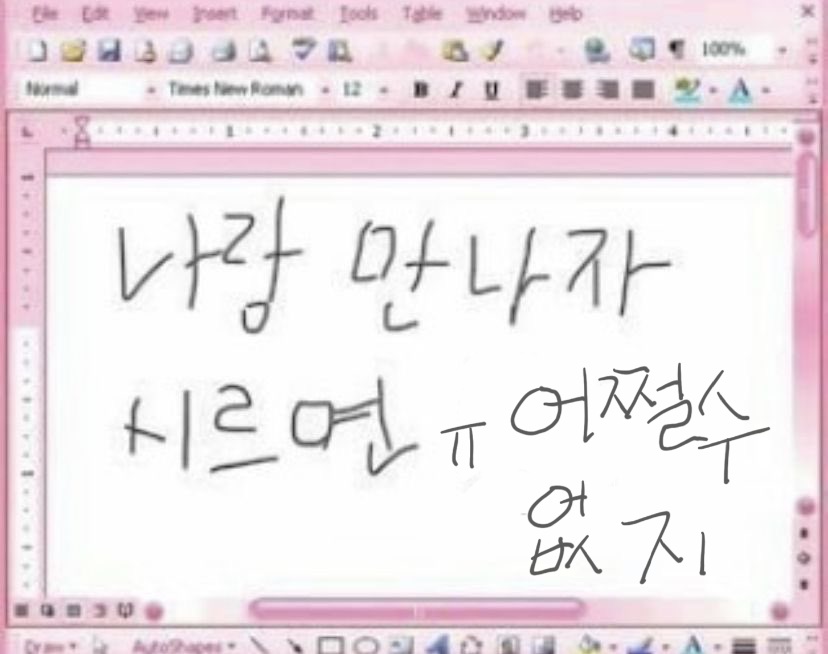 File Edit View Insert Format Tools Table Window Help
100%
Normal Times New Roman 12 B I U A
1 2 3 4
나랑 만나자
시르면 ㅠ 어쩔수
없지
Draw AutoShapes A